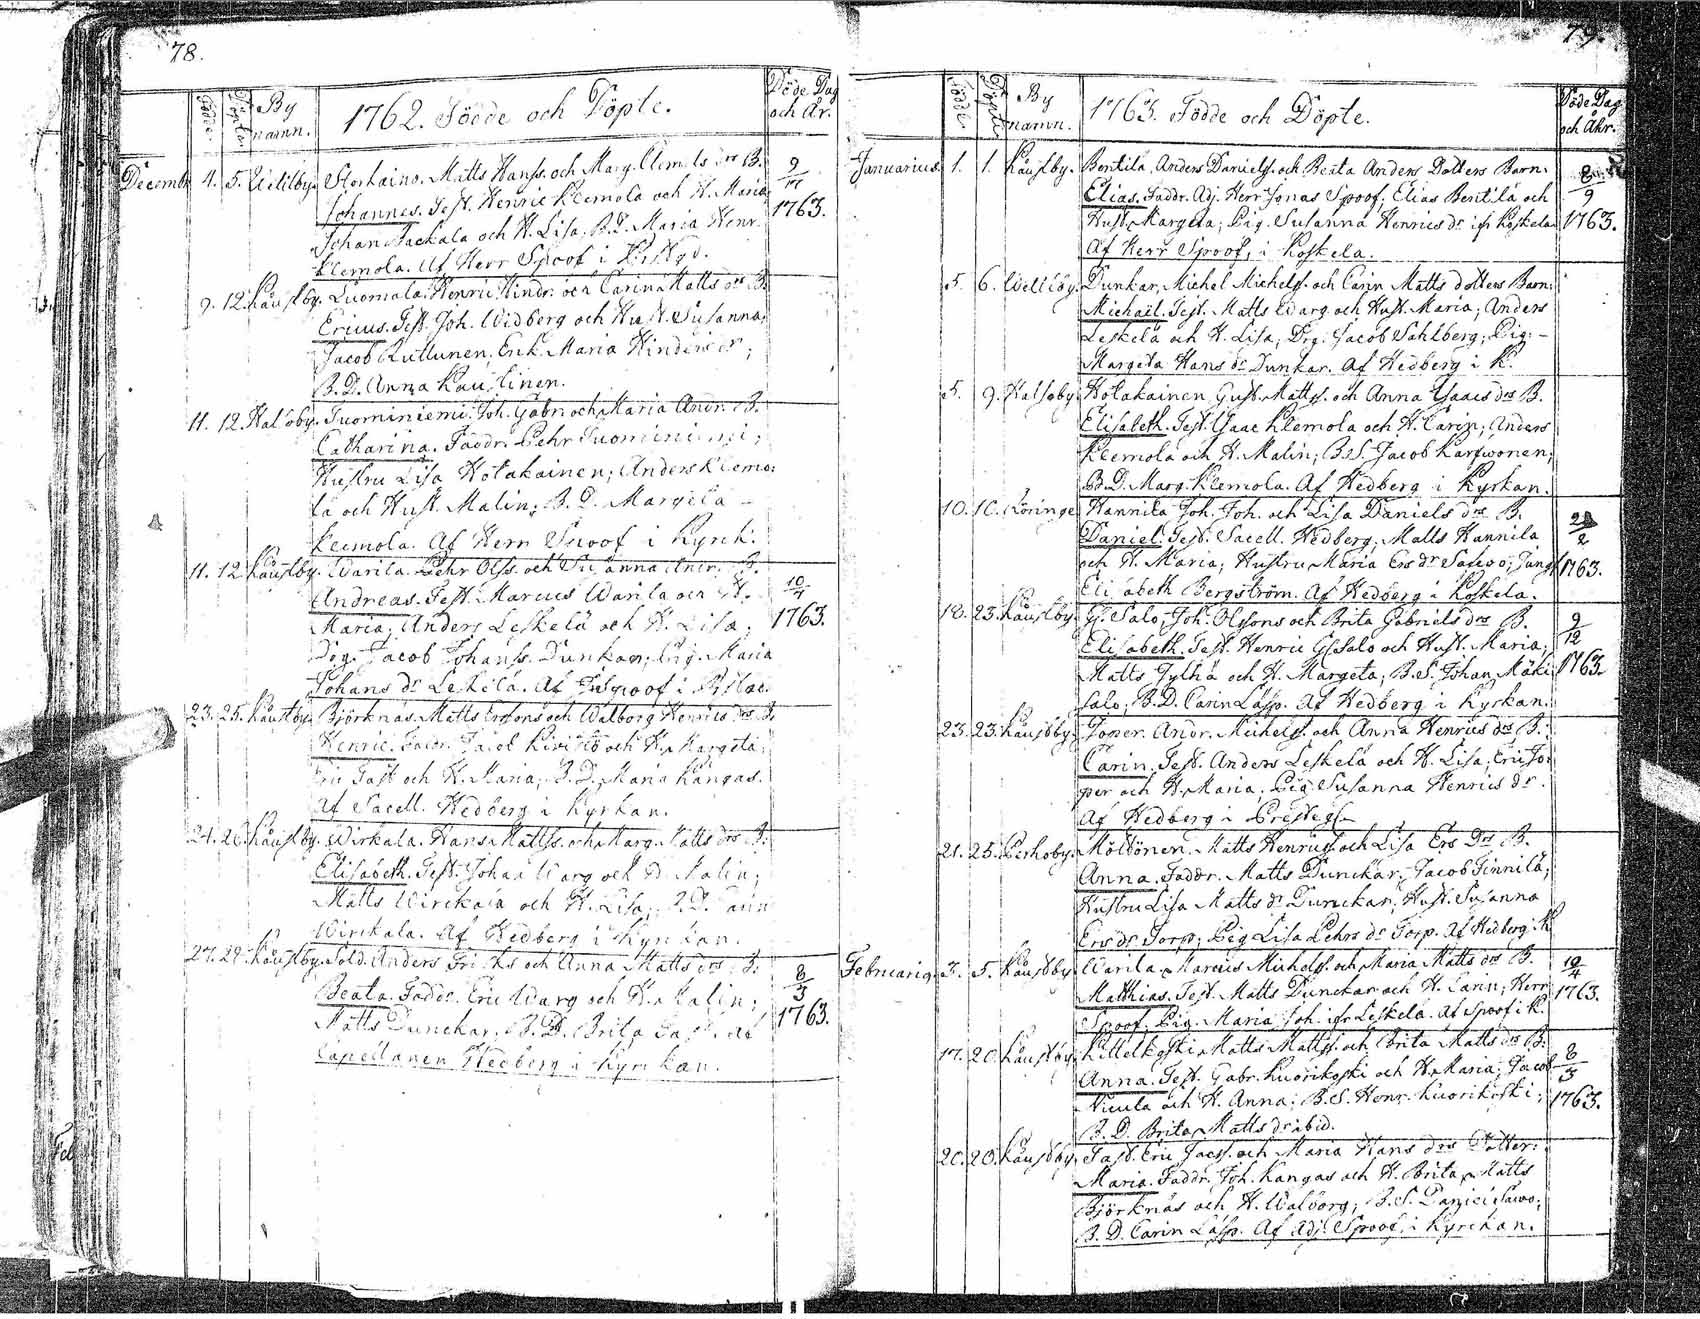 78.
Födde
Döpte
By namn.
1762. Födde och Döpte.
Döde Dag och År.
Decembr 4. 5. Storhaino. Matts Hanss. och Marg. Clemets drs B.
Johannes. Test. Henric Klemola och H. Maria
Johan Jackala och H. Lisa; B.D. Maria Henr.
Klemola. Af Herr Spoof i
9/17 1763.
9. 12. Kaustby. Luomala, Henric Hindr. och Carin Matts drs B.
Ericus. Test. Joh. Widberg och Hust. Susanna;
Jacob Enk. Maria Hinders dr;
B.D. Anna Kaustinen.
11. 12. Halsoby. Tuominiemi. Joh. Gabr. och Maria Andr. B.
Catharina. Faddr. Pehr Tuominiemi;
Hustru Lisa Hotakainen; Anders Klemo-
la och Hust. Malin; B.D. Margeta -
Klemola. Af Herr Spoof i Kyrck.
11. 12. Kaustby. Warila. Pehr Olss. och Susanna Andr. B.
Andreas. Test. Marcus Warila och H.
Maria; Anders Leskelä och H. Lisa;
Drg. Jacob Johanss. Dunkar; Pig. Maria
Johans dr Leskelä. Af Spoof i
10/1 1763.
23. 25. Kaustby. Björknäs. Matts Ersons och Walborg Henrics drs B.
Henric. Faddr. Jacob Kivistö och H. Margeta;
Eric Tast och H. Maria; B.D. Maria Kangas.
Af Sacell. Hedberg i Kyrkan.
24. 26. Kaustby. Wirkala. Hans Mattss. och Marg. Matts drs B.
Elisabeth. Test. Johan Warg och H. Malin;
Matts Wirckala och H. Lisa; B.D. Carin
Wirckala. Af Hedberg i Kyrckan.
27. 29. Kaustby. Sold. Anders Frisks och Anna Matts drs B.
Beata. Faddr. Eric Warg och H. Malin;
Matts Dunckar; B.D. Brita Tast. Af
Capellanen Hedberg i Kyrckan.
8/3 1763.
79.
Födde
Döpte
By namn.
1763. Födde och Döpte.
Döde Dag och Åhr.
Januarius. 1. 1. Kaustby. Bentilä, Anders Danielss. och Beata Anders Dotters Barn.
Elias. Faddr. Adj. Herr Jonas Spoof; Elias Bentilä och
Hust. Margeta; Pig. Susanna Henrics dr ifr Koskela
Af Herr Spoof, i Koskela.
8/9 1763.
5. 6. Wetilby. Dunkar, Michel Michelss. och Carin Matts dotters Barn:
Michaël. Test. Matts Warg och Hust. Maria; Anders
Leskelä och H. Lisa; Drg. Jacob Sahlberg; Pig: -
Margeta Hans dr Dunkar. Af Hedberg i K.
5. 9. Halsoby. Hotakainen, Gust. Mattss. och Anna Isaacs drs B.
Elisabeth. Test. Isaac Klemola och H. Carin; Anders
Klemola och H. Malin; B.S. Jacob Karfwonen;
B.D. Marg. Klemola. Af Hedberg i Kyrkan.
10. 10. Köringe Hannila Joh. Joh. och Lisa Daniels drs B.
Daniel. Test. Sacell. Hedberg; Matts Hannila
och H. Maria; Hustru Maria Ers dr Sawo; Jungf
Elisabeth Bergström. Af Hedberg i Koskela.
1763.
18. 23. Kaustby. G. Salo, Joh. Olssons och Brita Gabriels drs B.
Elisabeth. Test. Henric G. Salo och Hust. Maria;
Matts Jylhä och H. Margeta; B.S. Johan Mäki-
salo; B.D. Carin Läsp. Af Hedberg i Kyrkan.
9/12 1763.
23. 23. Kaustby. Joper. Andr. Michelss. och Anna Henrics drs B.
Carin. Test. Anders Leskelä och H. Lisa; Eric Jo-
per och H. Maria; Pig. Susanna Henrics dr.
Af Hedberg i Presteg.
21. 25. Perhoby. Möttönen. Matts Henrics. och Lisa Ers Drs B.
Anna. Faddr. Matts Dunckar; Jacob Finnilä;
Hustru Lisa Matts dr Dunckar; Hust. Susanna
Ers dr Torp; Pig Lisa Pehrs dr Torp. Af Hedberg i K
Februarius 3. 5. Kaustby Warila. Marcus Michelss. och Maria Matts drs B.
Matthias. Test. Matts Dunckar och H. Carin; Herr
Spoof; Pig. Maria Joh. ifr Leskelä. Af Spoof i K.
10/4 1763.
17. 20. Kaustby. Kittelkoski Matts Mattss. och Brita Matts drs B.
Anna. Test. Gabr. Kuorikoski och H. Maria; Jacob
Nicula och H. Anna; B.S. Henr. Kuorikoski;
B.D. Brita Matts dr ibid.
8/3 1763.
20. 20. Kaustby. Tast. Eric Jacss. och Maria Hans drs Dotter:
Maria. Faddr. Joh. Kangas och H. Brita; Matts
Björknäs och H. Walborg; B.S. Daniel Sawo;
B.D. Carin Läsp. Af Adj. Spoof, i Kyrckan.